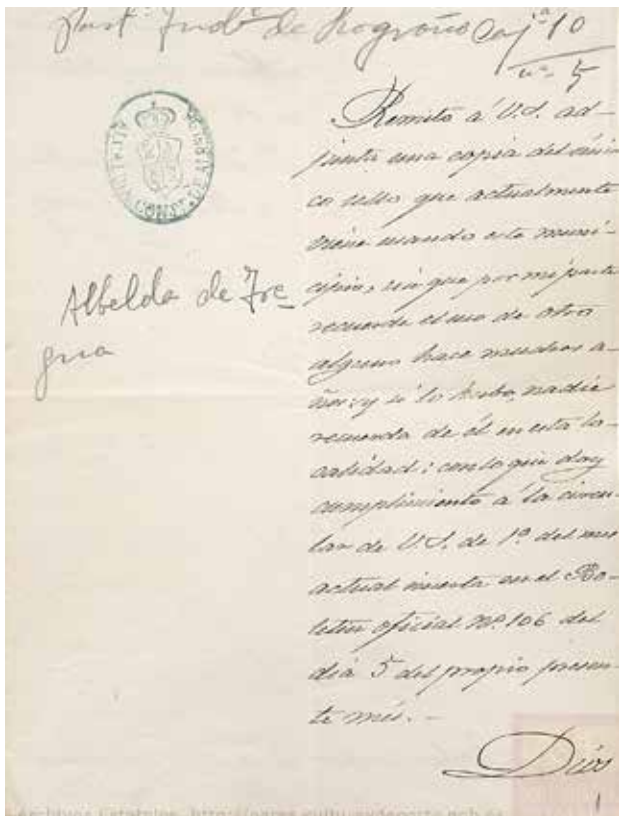 de Logroño Caj.ª 10
nº 5
ALCALDIA CONST. DE ALBELDA
Albelda de Ire
gua
Remito á V.S. ad-
junta una copia del úni-
co sello que actualmente
viene usando este muni-
cipio, sin que por mi parte
recuerde el uso de otro
alguno hace muchos a-
ños: y si lo hubo, nadie
recuerda de él en esta lo-
calidad; con lo que doy
cumplimiento á la circu-
lar de V.S. de 1º del mes
actual inserta en el Bo-
letin oficial nº 106 del
dia 5 del propio presen-
te mes. -
Dios
1
Archivos Estatales, http://pares.